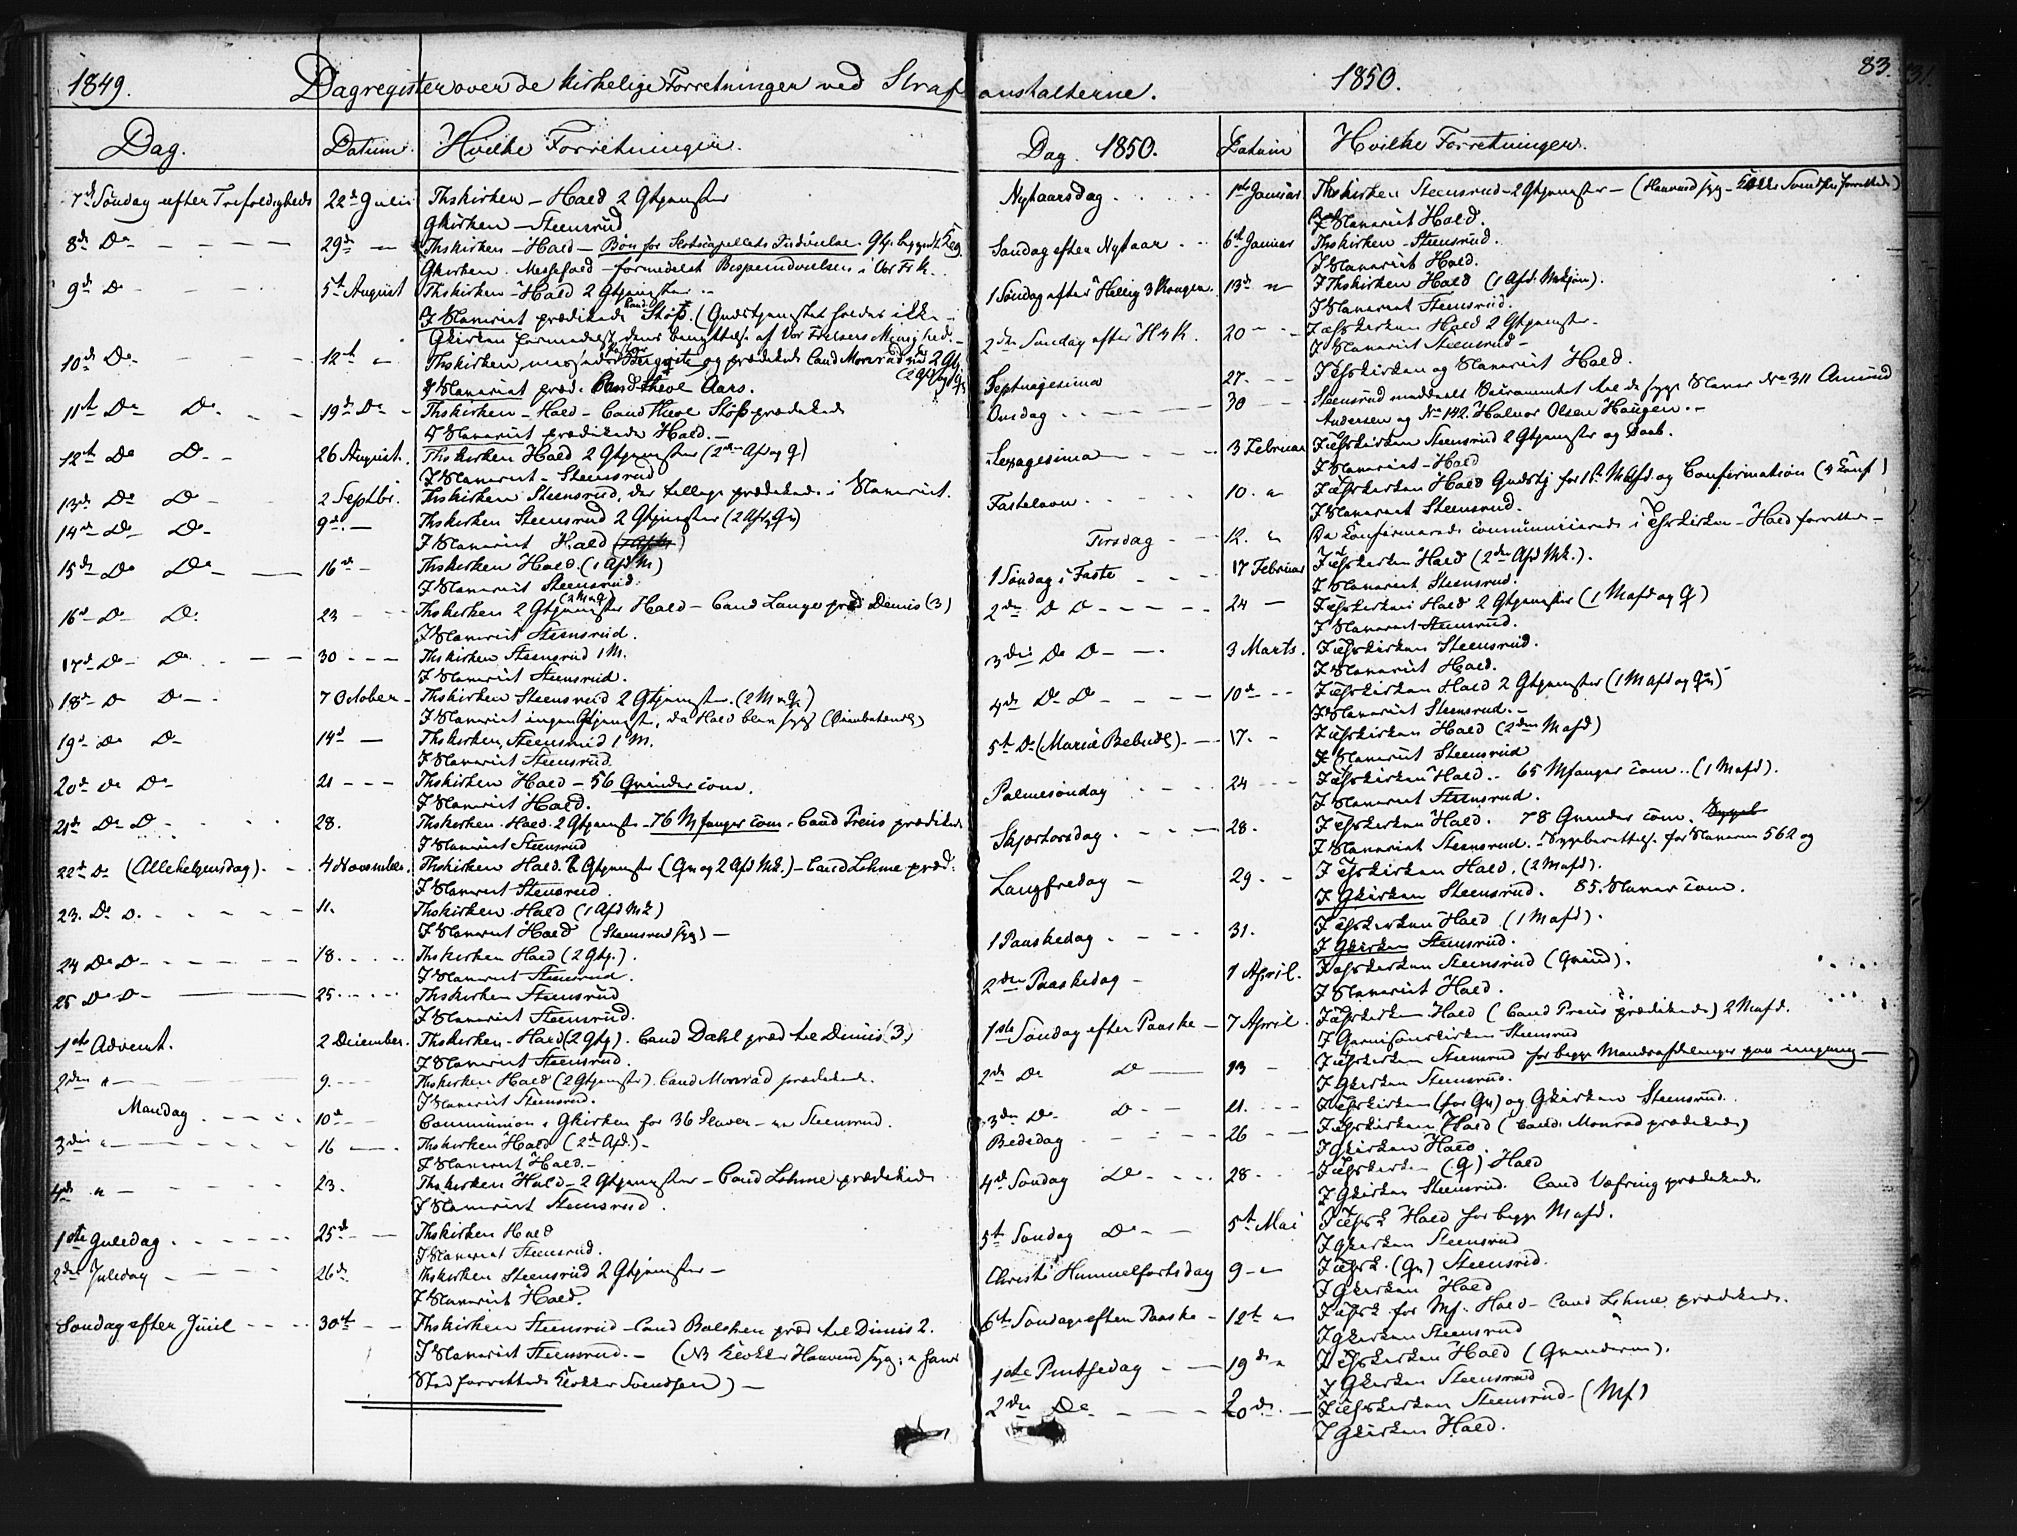 1849. Dagregister over de kirkelige Forretninger ved Straf
Dag. Datum. Hvilke Forretninger.
7de Søndag efter Trefoldigheds 22de Julii Thskirken – Hald 2 Gtjenester
Gkirken – Steensrud
8de Do 29de Thskirken – Hald – Bøn for Slotscapellets Indvielse.
Gkirken. Messefald – formedelst Bispeindvielsen i Vor Fr K.
9de Do 5te August Thskirken – Hald 2 Gtjenester
I Slaveriet prædikede Cand Støß. (Gudstjenesten holdes ikke i
Gkirken formedelst dens benyttelse af Vor Frelsers Menighed.
10de Do 12te Thskirken, messede og prædikede Cand Monrad ved 2 Gtj.
I Slaveriet præd. Cand Theol Aars.
11te Do Do 19de Do Thskirken – Hald – Cand Theol Støß prædikede
I Slaveriet prædikede Hald.
12te Do Do 26 August. Thskirken Hald 2 Gtjenester (2den Afd og Q)
I Slaveriet – Steensrud
13de Do Do 2 Septbr. Thskirken Steensrud, der tillige prædikede i Slaveriet.
14de Do Do 9de Thskirken Steensrud 2 Gtjenester (2 Afd Qv)
I Slaveriet Hald
15de Do Do 16de Thskirken Hald. (1 Afd M)
I Slaveriet Steensrud.
16de Do Do 23 Thskirken 2 Gtjenester Hald – Cand Lange præd Dimis (3)
I Slaveriet Steensrud.
17de Do Do 30 Thskirken Steensrud 1 M.
I Slaveriet Steensrud.
18de Do Do 7 October Thskirken Steensrud 2 Gtjenester. (2 M og Q)
I Slaveriet ingen Gtjeneste, da Hald blev syg
19de Do Do 14de Thskirken, Steensrud 1 M.
I Slaveriet Steensrud.
20de Do Do 21 Thskirken Hald – 56 Qvinder com.
I Slaveriet Hald.
21de Do Do 28. Thskirken. Hald. 2 Gtjenest – 76 Mfanger com. Cand Preus prædikede
I Slaveriet Steensrud
22de Do (Allehelgensdag). 4 November. Thskirken Hald. 2 Gtjenester (Qv og 2 Afd MK.) – Cand Lohme præd.
I Slaveriet Steensrud
23. Do Do 11. Thskirken. Hald (1 Afd MK)
I Slaveriet Hald (Steensrud syg) –
24 Do Do 18. Thskirken Hald (2 Gtj.).
I Slaveriet Steensrud.
25 Do Do 25. Thskirken Steensrud
I Slaveriet Steensrud.
1ste Advent. 2 December. Thskirken – Hald (2 Gtj). Cand Dahl præd til Dimis (3)
I Slaveriet Steensrud.
2den 9. Thskirken Hald (2 Gtjenester). Cand Monrad prædikede.
I Slaveriet Steensrud.
Mandag 10de Communion i Gkirken for 36 Slaver – ved Steensrud.
3die 16 Thskirken Hald (2de Afd.) –
I Slaveriet Hald.
4de 23. Thskirken Hald – 2 Gtjenester – Cand Lohme prædikede
I Slaveriet Steensrud.
1ste Juledag 25de Thskirken Hald
I Slaveriet Steensrud.
2den Juledag 26de Thskirken Steensrud 2 Gtjenester –
I Slaveriet Hald.
Søndag efter Juul 30te Thskirken Steensrud – Cand Balchen præd til Dimis 2.
I Slaveriet Steensrud. – (NB Klokker Hanvend syg; i hans
Sted forrettede Klokker Svendsen) –
anstalterne. 1850. 83.
Dag. 1850. Datum Hvilke Forretninger.
Nytaarsdag 1ste Januar Thskirken Steensrud – 2 Gtjenester –
I Slaveriet Hald.
Søndag efter Nytaar 6te Januar Thskirken – Steensrud.
I Slaveriet Hald.
1 Søndag efter Hellig 3 Konger. 13de I Thskirken Hald (1 Afd. Mkjøn).
I Slaveriet Steensrud.
2den Søndag efter H 3 K. 20 I Tgskirken Hald 2 Gtjenester.
I Slaveriet Steensrud –
Septuagesima 27. I Tgskirken og Slaveriet Hald.
Onsdag 30 Steensrud meddeelt Sacramentet til de syge Slaver No 311 Amund
Andersen og No 142. Halvor Olsen Haugen. –
Sexagesima 3 Februar I Tgskirken Steensrud 2 Gtjenester og Daab.
I Slaveriet – Hald
Fastelavn 10. I Tgskirken Hald Gudstj for 1ste MAfd. og Confirmation (4 Conf)
I Slaveriet Steensrud.
Tirsdag 12. De Confirmerede communicerede i Tgskirken – Hald forrettede –
1 Søndag i Faste 17 Februar I Tgskirken Hald (2den Afd MK.).
I Slaveriet Steensrud.
2den Do Do 24 I Tgskirken Hald 2 Gtjenester (1 Mafd og Q)
I Slaveriet Steensrud.
3die Do Do 3 Marts. I Tgskirken Steensrud.
I Slaveriet Hald.
4de Do Do 10de I Tgskirken Hald 2 Gtjenester (1 Mafd og Qv)
I Slaveriet Steensrud. –
5te Do (Mariæ Bebud.) 17. I Tgskirken Hald (2den Mafd)
I Slaveriet Steensrud
Palmesøndag 24 I Tgskirken Hald. 65 Mfanger com. (1 Mafd).
I Slaveriet Steensrud.
Skjærtorsdag. 28. I Tgskirken Hald. 78 Qvinder com.
I Slaveriet Steensrud. – Sygeberettelse for Slaverne 562 og
Langfredag 29. I Tgskirken Hald. (2 Mafd).
I Gkirken Steensrud. 85. Slaver com.
1 Paaskedag. 31. I Tgskirken Hald (1 Mafd).
I Gkirken Steensrud.
2den Paaskedag 1 April. I Tgskirken Steensrud (Qvind).
I Slaveriet Hald.
1ste Søndag efter Paaske 7 April. I Tgskirken Hald (Cand Preus prædikede) 2 Mafd.
I Garnisonskirken Steensrud
2de Do Do 13 I Tgskirken Steensrud for begge Mandsafdelinger paa eengang –
I Gkirken Steensrud.
3die Do Do 21. I Tgskirken (for Qv) og Gkirken Steensrud.
Bededag 26 I Tgskirken Hald (Cand. Monrad prædikede)
I Gkirken Hald.
4de Søndag Do 28. I Tgskirken (Q) Hald
I Gkirken Steensrud. Cand Vefring prædikede.
5te Søndag Do 5te Mai I Tgsk Hald for begge Mafd.
I Gkirken Steensrud
Christi Himmelfartsdag 9 I Tgsk. (Qv) Steensrud.
I Gkirken Hald
6te Søndag efter Paaske 12te I Tgsk for Mf. Hald – Cand Lohme prædikede.
I Gkirken Steensrud
1ste Pintsedag 19de I Tgskirken Hald (Qvinderne).
I Gkirken Steensrud
2den Do 20de I Tgskirken Steensrud – (Mf)
I Gkirken Hald.